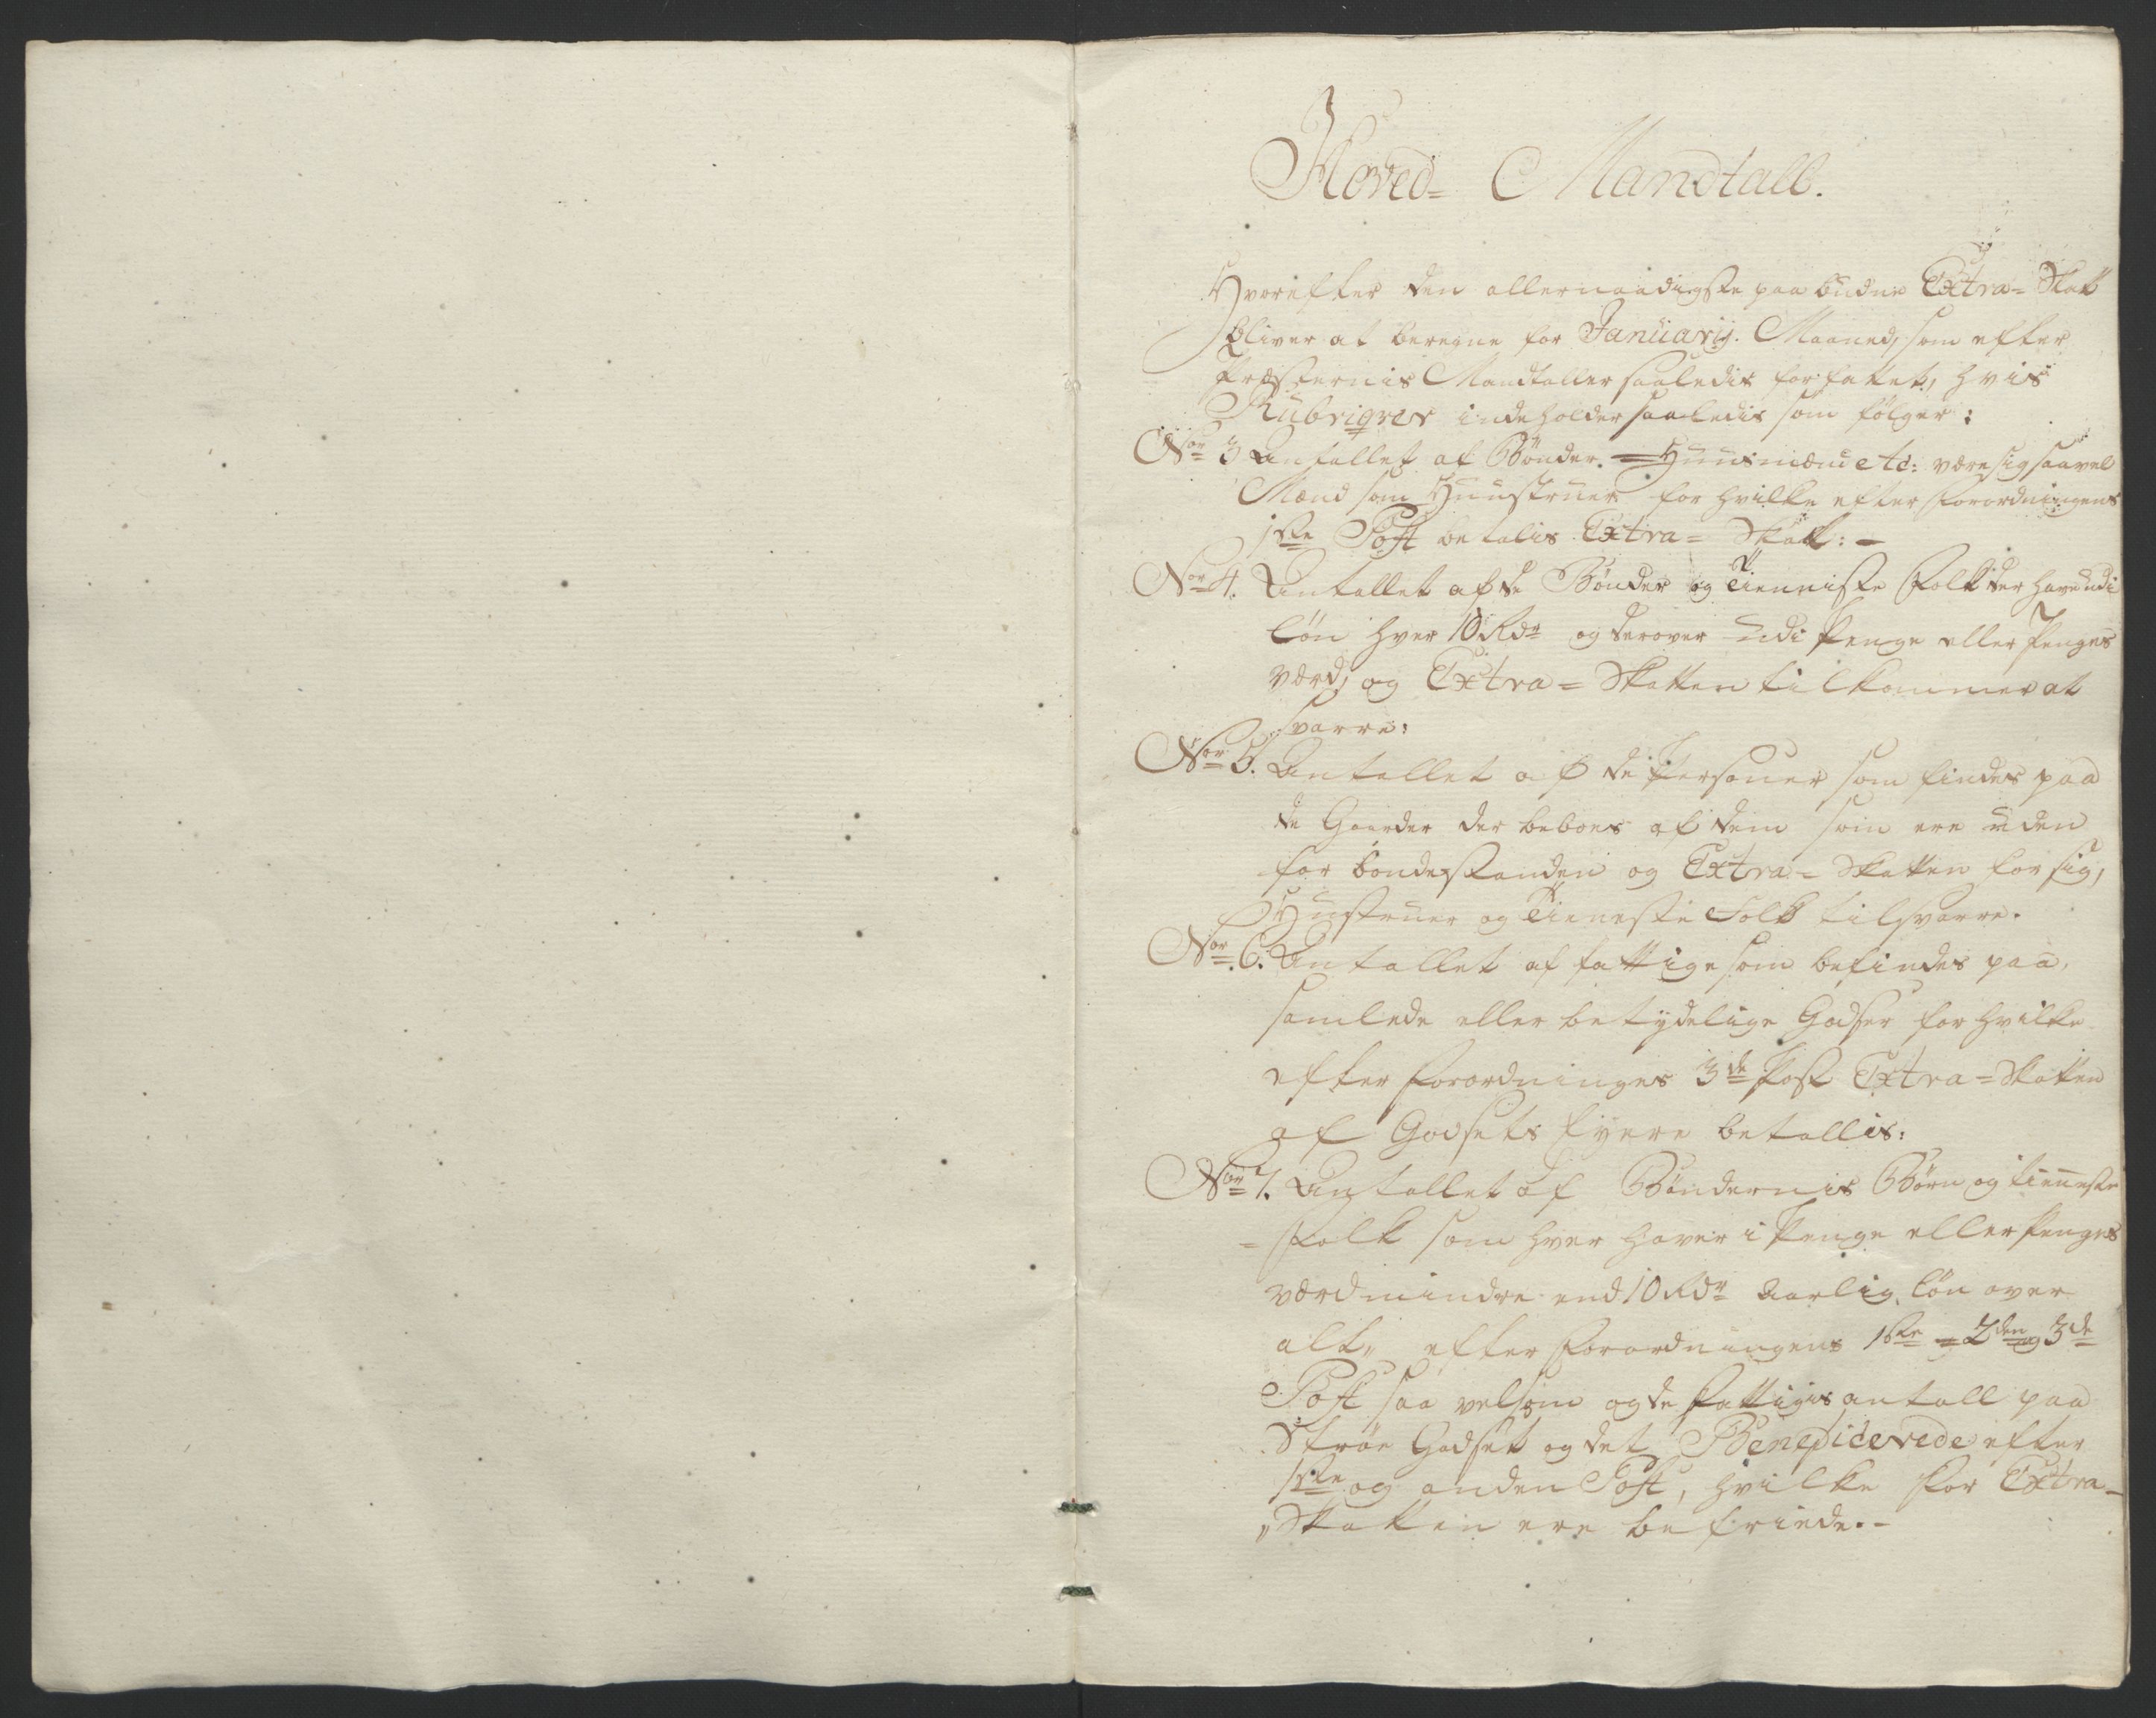 Hoved- Mandtall.
Hvorefter den allernaadigste paabudne Extra- Skatt
bliver at beregne for Januarij. Maaned, som efter
Præsternis Mandtaller saaledis forfattet, hvis
Rubriqver indeholder saaledis som følger:
Nor 3 Antallet af Bønder. Huusmænd etc: være sig saavel
Mænd som Huustruer for hvilke efter Forordningens
1ste Post betalis Extra- Skatt:-
Nor 4. Antallet af de Bønder og Tienniste Folk der have udi
løn hver 10 Rdr og derover udi Penge eller Penges
værd, og Extra- Skatten tilkommer at
svarre:
Nor 5. Antallet af de Personer som findes paa
de Gaarder der beboes af dem som ere uden
for bondestanden og Extra- Skatten for sig,
Hustruer og Tieneste Folk tilsvarre.
Nor 6. Antallet af fattige som befindes paa,
samlede eller betydelige Godser for hvilke
efter Forordninges 3de Post Extra- Skatten
af Godsets Eyere betallis:
Nor 7. Antallet af Bøndernis Børn og tienneste
- Folk som hver haver i Penge eller Penges
værd mindre end 10 Rdr Aarlig løn over
alt, efter Forordningens 1ste og 2den og 3de
Post saa velsom og de Fattigis antall paa
Strøe Godset og det Beneficerede efter
1ste og anden Post, hvilke for Extra-
Skatten ere befriede.-